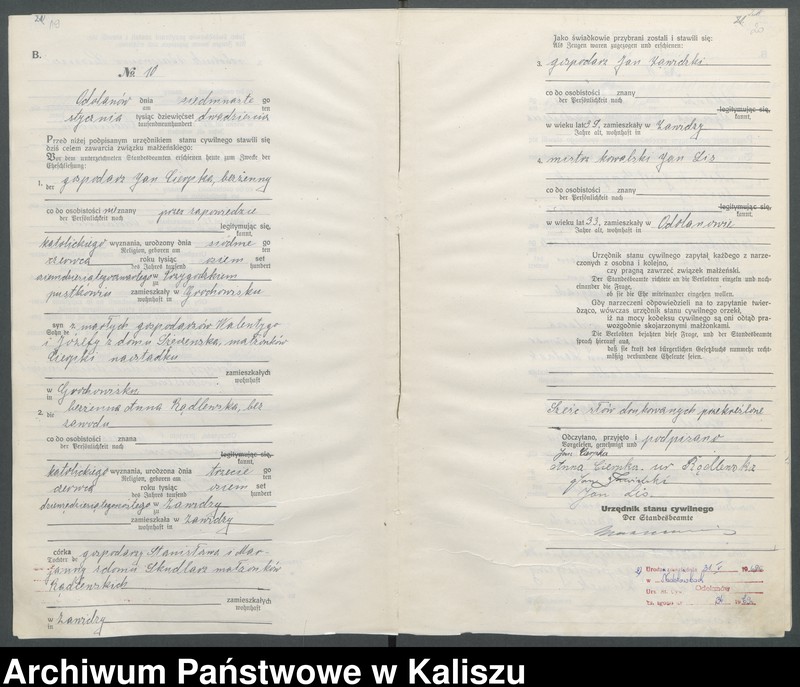 B.
№ 10
Odolanów dnia siedmnaste go
am ten
stycznia tysiąc dziewięćset dwadzieścia
tausendneunhundert
Przed niżej podpisanym urzędnikiem stanu cywilnego stawili się
dziś celem zawarcia związku małżeńskiego:
Vor dem unterzeichneten Standesbeamten erschienen heute zum Zweck der
Eheschließung:
1. gospodarz Jan Ciepka, bezżenny
der
co do osobistości nie znany przez zapowiedzie
der Persönlichkeit nach
legitymując się,
kannt,
katolickiego wyznania, urodzony dnia siódme go
Religion, geboren am ten
czerwca roku tysiąc osiem set
des Jahres tausend hundert
w
zu
pustkowiu zamieszkały w Grochowisku
wohnhaft in
syn z małych gospodarzów Walentego
Sohn de
i Józefy z domu małżonków
Ciepki
zamieszkałych
wohnhaft
w Grochowisku
in
2. bezżenna Anna Kądlewska, bez
die
zawodu
co do osobistości znana
der Persönlichkeit nach
legitymując się,
kannt,
katolickiego wyznania, urodzona dnia trzecie go
Religion, geboren am ten
czerwca roku tysiąc osiem set
des Jahres tausend hundert
w Zawidzy
zu
zamieszkała w Zawidzy
wohnhaft in
córka gospodarzy Stanisława i Mar-
Tochter de
janny z domu Skudlarz małżonków
Kądlewskich
zamieszkałych
wohnhaft
w Zawidzy
in
Jako świadkowie przybrani zostali i stawili się:
Als Zeugen waren zugezogen und erschienen:
3. gospodarz Jan Zawidzki
co do osobistości znany
der Persönlichkeit nach
legitymując się,
kannt,
w wieku lat zamieszkały w Zawidzy
Jahre alt, wohnhaft in
4. mistrz kowalski Jan Lis
co do osobistości znany
der Persönlichkeit nach
legitymując się,
kannt,
w wieku lat 33, zamieszkały w Odolanowie
Jahre alt, wohnhaft in
Urzędnik stanu cywilnego zapytał każdego z narze-
czonych z osobna i kolejno,
czy pragną zawrzeć związek małżeński.
Der Standesbeamte richtete an die Verlobten einzeln und nach-
einander die Frage,
ob sie die Ehe miteinander eingehen wollen.
Gdy narzeczeni odpowiedzieli na to zapytanie twier-
dząco, wówczas urzędnik stanu cywilnego orzekł,
iż na mocy kodeksu cywilnego są oni odtąd pra-
wozgodnie skojarzonymi małżonkami.
Die Verlobten bejahten diese Frage, und der Standesbeamte
sprach hierauf aus,
daß sie kraft des bürgerlichen Gesetzbuchs nunmehr recht-
mäßig verbundene Eheleute seien.
Sześć słów drukowanych przekreślone
Odczytano, przyjęto i podpisano
Vorgelesen, genehmigt und
Jan Ciepka
Anna Ciepka ur. Kądlewska
Jan Zawidzki
Jan Lis
Urzędnik stanu cywilnego
Der Standesbeamte
Odolanów
Archiwum Państwowe w Kaliszu